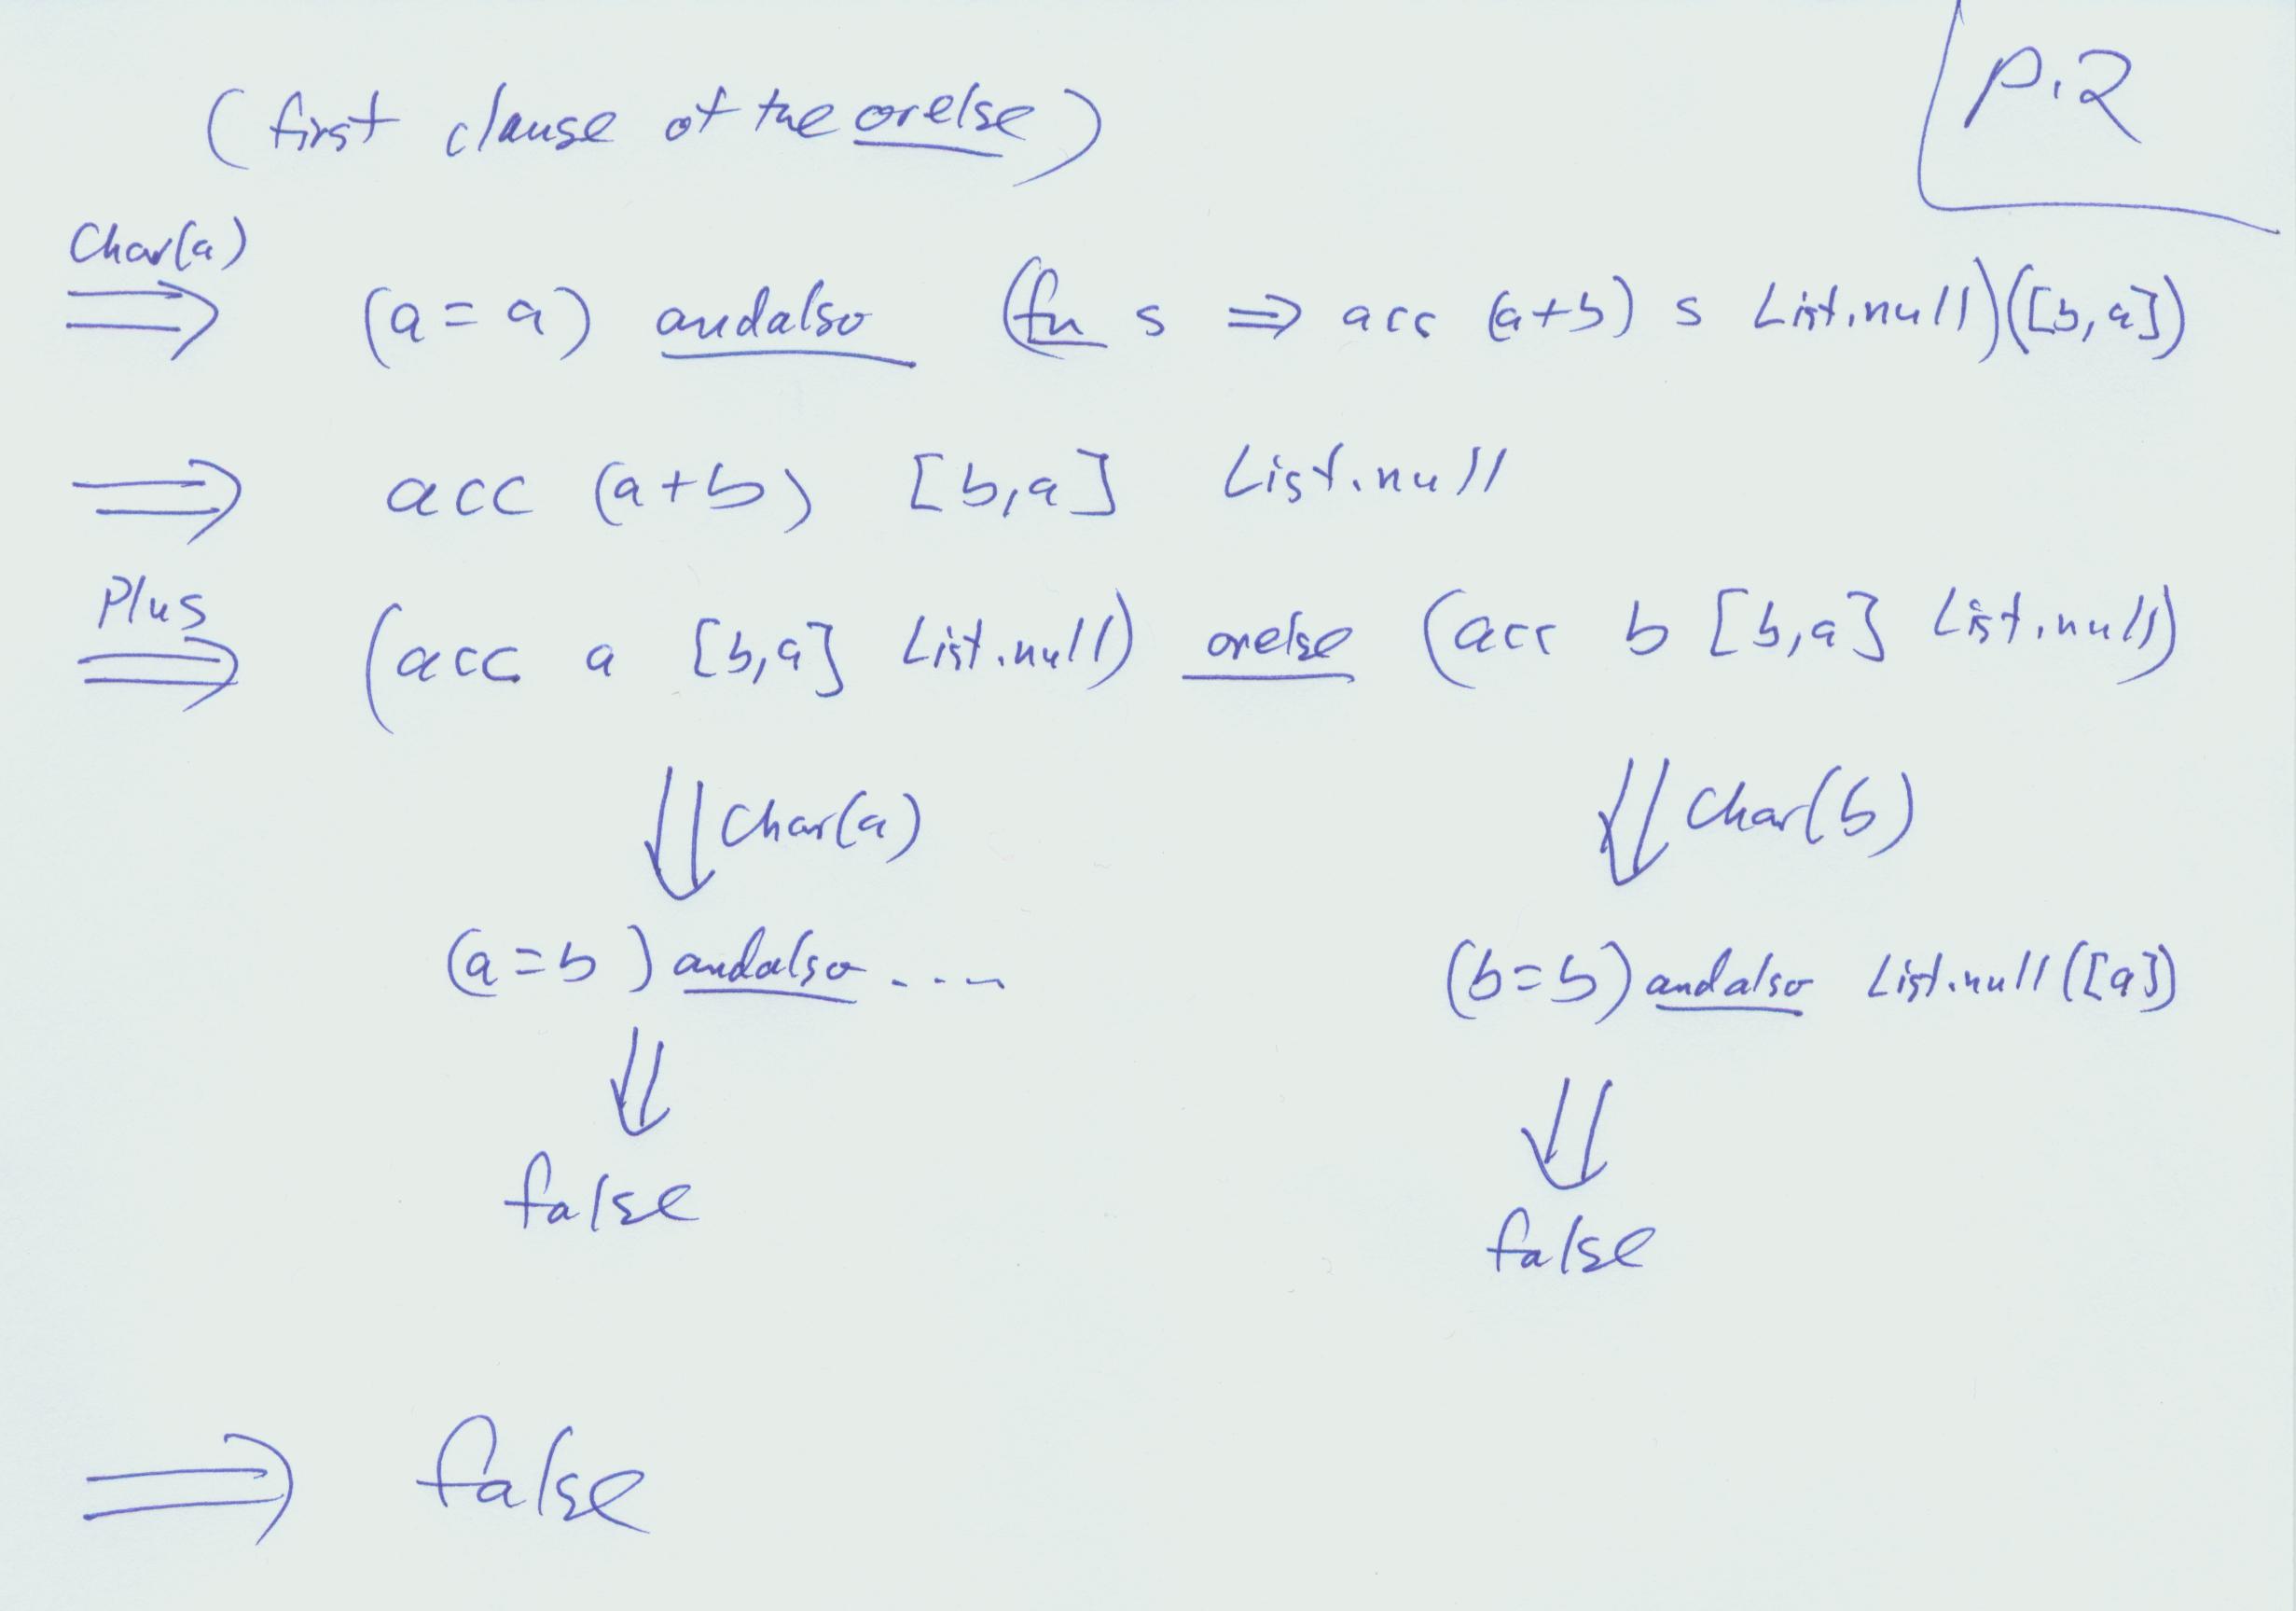 p.2
(first clause of the orelse)
Char(a)
⟹ (a = a) andalso (fn s ⇒ acc (a+b) s List.null)([b,a])
⟹ acc (a+b) [b,a] List.null
Plus
⟹ (acc a [b,a] List.null) orelse (acc b [b,a] List.null)
⇓ Char(a) ⇓ Char(b)
(a=b) andalso .... (b=b) andalso List.null([a])
⇓ ⇓
false false
⟹ false